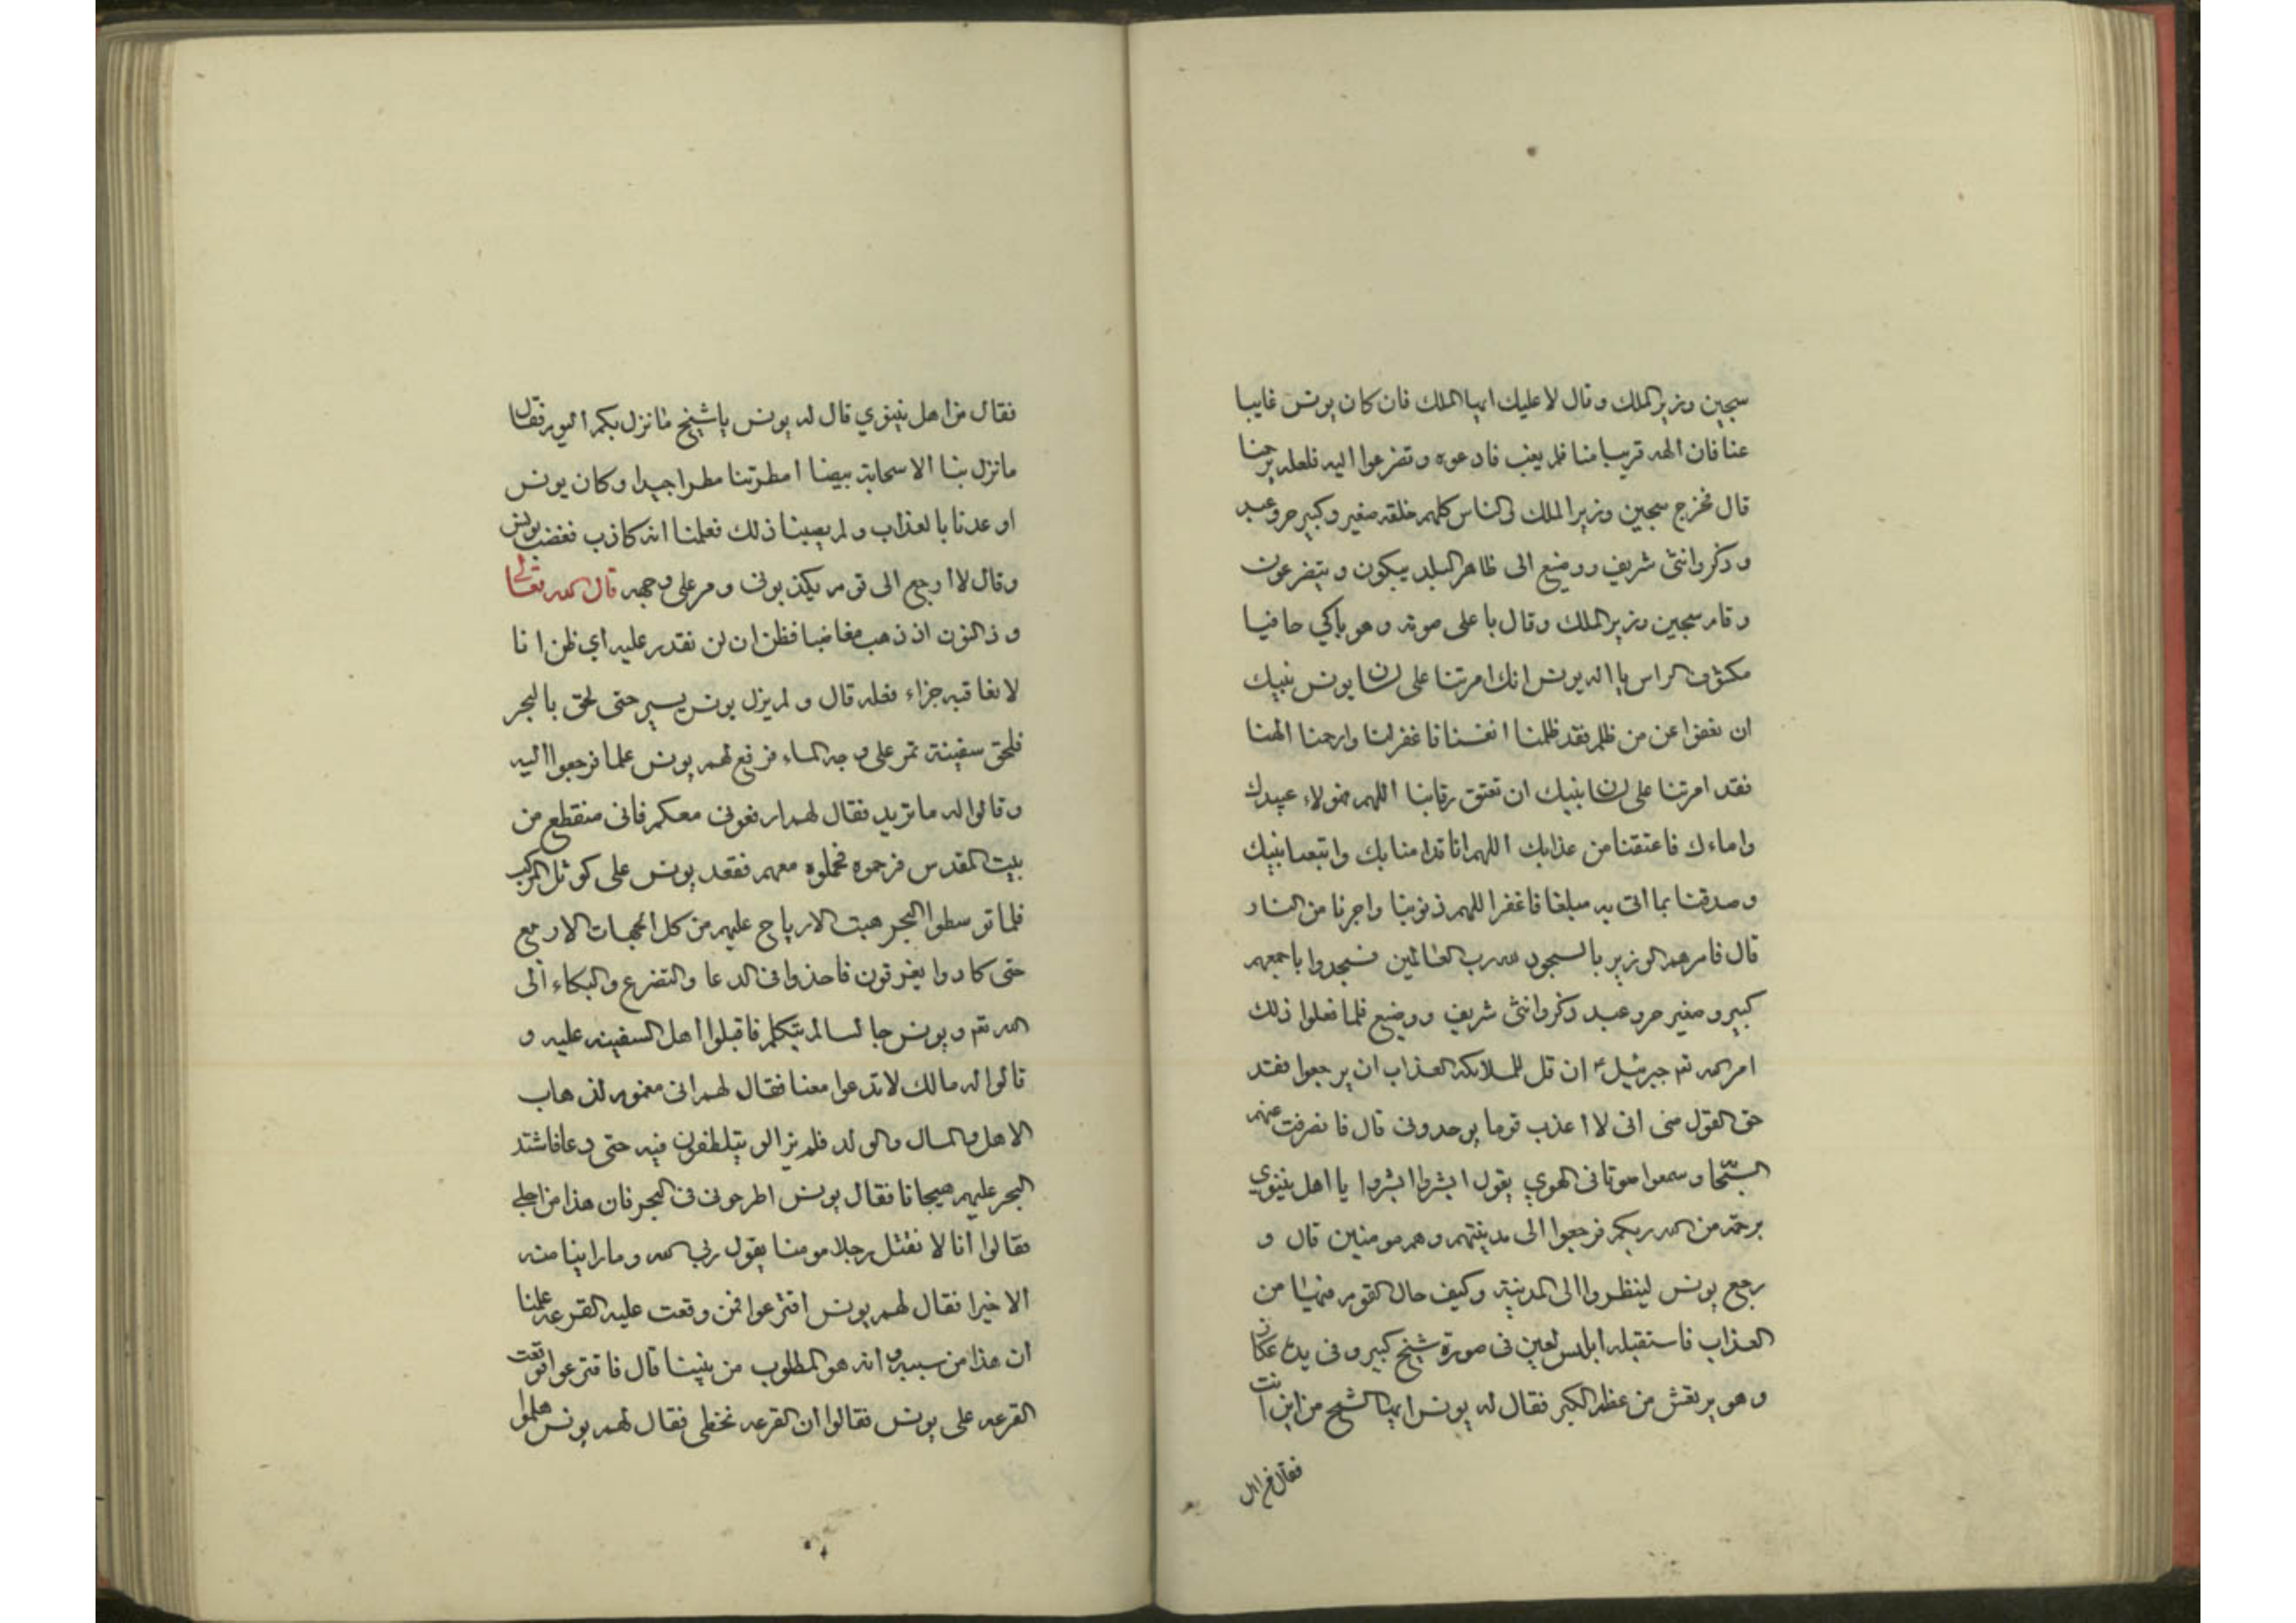 سجين وزير الملك وقال لا عليك ايها الملك فان كان يونس غايبا
عنا فان الهه قريبا منا فلم يغب فادعوه وتضرعوا اليه فلعله يرحمنا
قال فخرج سجين وزير الملك والناس كلهم خلقه صغير وكبير حر وعبد
وذكر وانثى شريف ووضيع الى ظاهر البلد يبكون ويتضرعون
وقام سجين وزير الملك وقال باعلى صوته وهو باكي حافيا
مكشوف الراس يا اله يونس انك امرتنا على لسان يونس نبيك
ان نعفوا عن من ظلم فقد ظلمنا انفسنا فاغفر لنا وارحمنا الهنا
فقد امرتنا على لسان نبيك ان تعتق رقابنا اللهم هولاء عبيدك
واماءك فاعتقنا من عذابك اللهم انا قد امنا بك واتبعنا نبيك
وصدقنا بما اتى به مبلغا فاغفر اللهم ذنوبنا واجرنا من النار
قال فامرهم الوزير بالسجود لله رب العالمين فسجدوا باجمعهم
كبير وصغير حر وعبد ذكر وانثى شريف ووضيع فلما فعلوا ذلك
امر الله تع جبرئيل ع ان قل للملائكه العذاب ان يرجعوا فقد
حق القول مني اني لا اعذب قوما يوحدوني قال فانصرفت عنهم
السحاب وسمعوا صوتا في الهوي يقول ابشروا ابشروا يا اهل نينوي
برحمة من الله ربكم فرجعوا الى مدينتهم وهم مومنين قال و
رجع يونس لينظروا الى المدينة وكيف حال القوم فيها من
العذاب فاستقبله ابليس لعين في صورة شيخ كبير وفي يده عكاز
وهو يرتعش من عظم الكبر فقال له يونس ايها الشيخ من اين انت
فقال من اهل
فقال من اهل نينوي قال له يونس يا شيخ ما نزل بكم اليوم فقال
ما نزل بنا الا سحابة بيضا امطرتنا مطرا جيدا وكان يونس
اوعدنا بالعذاب ولم يصيبنا ذلك فعلمنا انه كاذب فغضب يونس
وقال لا ارجع الى قوم يكذبوني ومر على وجهه قال الله تعالى
وذالنون اذ ذهب مغاضبا فظن ان لن نقدر عليه اي ظن انا
لا نعاقبه جزاء فعله قال ولم يزل يونس يسير حتى لحق بالبحر
فلحق سفينة تمر على وجه الماء فرفع لهم يونس علما فرجعوا اليه
وقالوا له ما تريد فقال لهم ارفعوني معكم فاني منقطع من
بيت المقدس فرحموه فحملوه معهم فقعد يونس على كوثل المركب
فلما توسطوا البحر هبت الارياح عليهم من كل الجهات الاربع
حتى كادوا يغرقون فاخذوا في الدعا والتضرع والبكاء الى
الله تع ويونس جالسا لم يتكلم فاقبلوا اهل السفينه عليه و
قالوا له مالك لا تدعوا معنا فقال لهم اني مغموم لذهاب
الاهل والمال والولد فلم يزالو يتلطفون فيه حتى دعا فاشتد
البحر عليهم هيجانا فقال يونس اطرحوني في البحر فان هذا من اجلي
فقالوا انا لا نقتل رجلا مومنا يقول ربي الله وما راينا منه
الا خيرا فقال لهم يونس اقترعوا فمن وقعت عليه القرعه علمنا
ان هذا من سببه وانه هو المطلوب من بيننا قال فاقترعوا فوقعت
القرعه على يونس فقالوا ان القرعه تخطي فقال لهم يونس هلموا